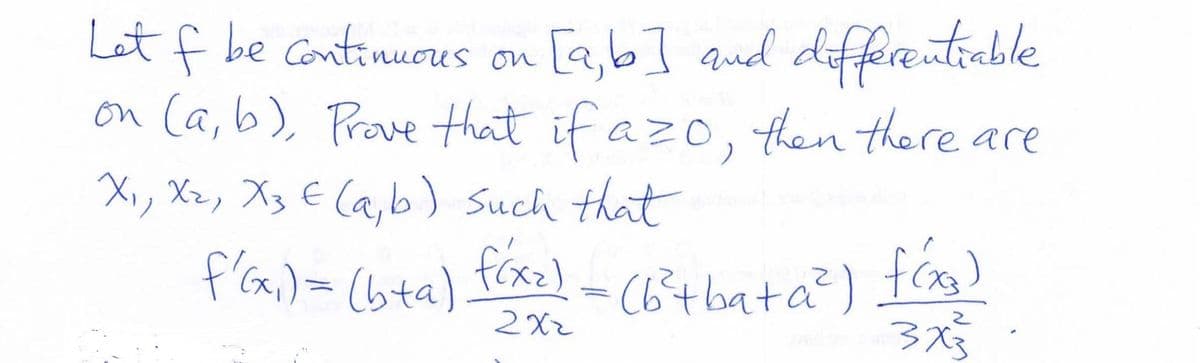 Let f be continuous on [a,b] and differentiable
on (a,b), Prove that if a≥0, then there are
x₁, x₂, x₃ ∈ (a,b) such that
f'(x₁) = (b+a) f'(x₂)/2x₂ = (b²+ba+a²) f'(x₃)/3x₃² .